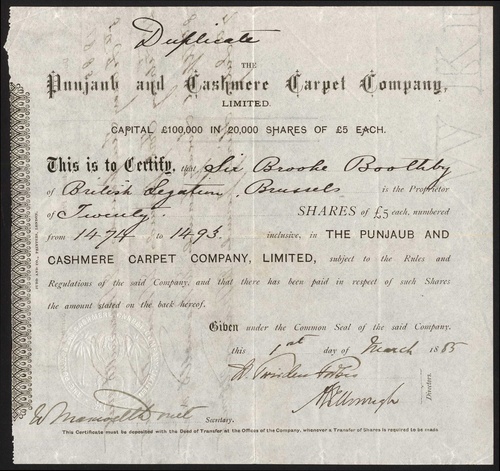 Duplicate
THE
Punjaub and Cashmere Carpet Company,
LIMITED.
CAPITAL £100,000 IN 20,000 SHARES OF £5 EACH.
This is to Certify, that Sir Brooke Boothby
of British Legation, Brussels is the Proprietor
of Twenty. SHARES of £5 each, numbered
from 1474 to 1493 inclusive, in THE PUNJAUB AND
CASHMERE CARPET COMPANY, LIMITED, subject to the Rules and
Regulations of the said Company, and that there has been paid in respect of such Shares
the amount stated on the back hereof.
Given under the Common Seal of the said Company.
this 1st day of March 1885
Directors.
Secretary.
This Certificate must be deposited with the Deed of Transfer at the Offices of the Company, whenever a Transfer of Shares is required to be made